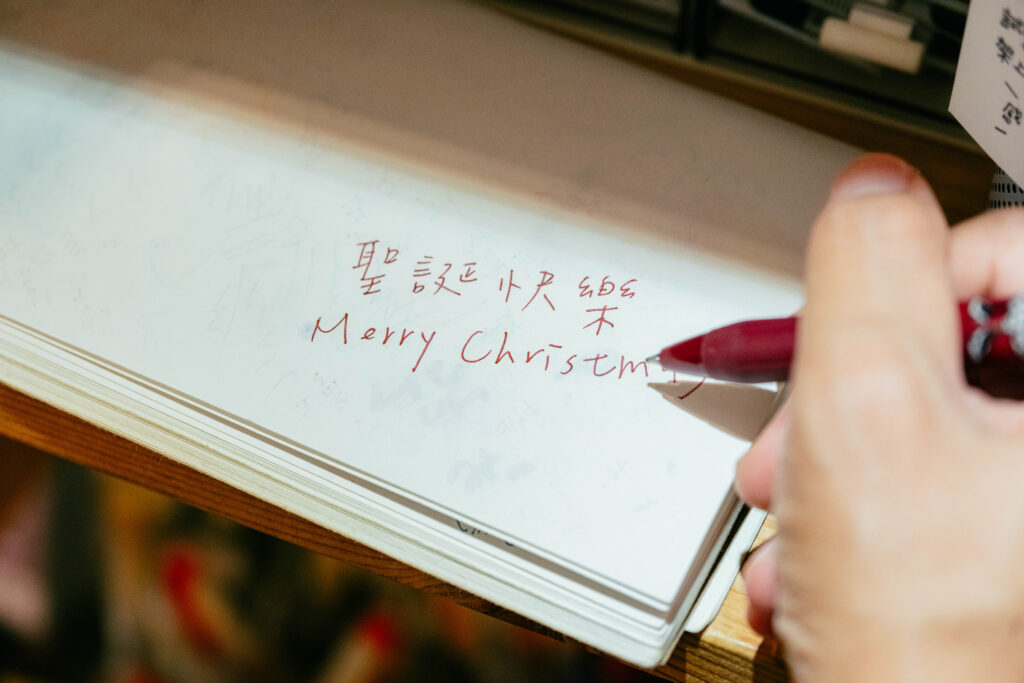 聖誕快樂
Merry Christmas